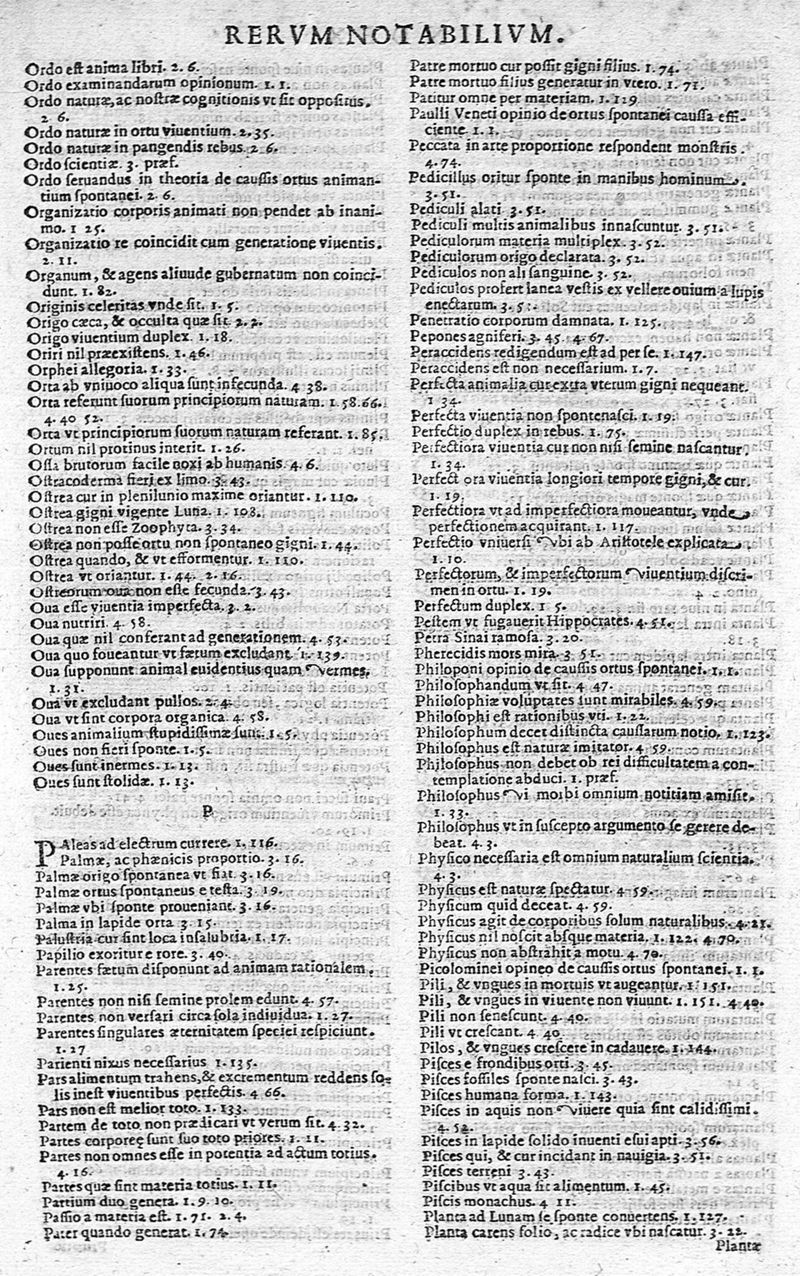 RERVM NOTABILIVM.
Ordo est anima libri. 2. 6.
Ordo examinandarum opinionum. 1. 1.
Ordo naturæ, ac nostræ cognitionis vt sit oppositus.
2 6.
Ordo naturæ in ortu viuentium. 2. 35.
Ordo naturæ in pangendis rebus. 2 6.
Ordo scientiæ. 3. præf.
Ordo seruandus in theoria de caussis ortus animan-
tium spontanei. 2. 6.
Organizatio corporis animati non pendet ab inani-
mo. 1 25.
Organizatio re coincidit cum generatione viuentis.
2. 11.
Organum, & agens aliuude gubernatum non coinci-
dunt. 1. 82.
Originis celeritas vnde sit. 1. 5.
Origo cæca, & occulta quæ sit. 2. 2.
Origo viuentium duplex. 1. 18.
Oriri nil præexistens. 1. 46.
Orphei allegoria. 1. 33.
Orta ab vniuoco aliqua sunt infecunda. 4 38.
Orta referunt suorum principiorum naturam. 1. 58. 66.
4. 40 52.
Orta vt principiorum suorum naturam referant. 1. 85.
Ortum nil protinus interit. 1. 26.
Ossa brutorum facile noxi ab humanis. 4. 6.
Ostracoderma fieri ex limo. 3. 43.
Ostrea cur in plenilunio maxime oriantur. 1. 110.
Ostrea gigni vigente Luna. 1. 108.
Ostrea non esse Zoophyta. 3. 34.
Ostrea non posse ortu non spontaneo gigni. 1. 44.
Ostrea quando, & vt efformentur. 1. 110.
Ostrea vt oriantur. 1. 44. 2. 16.
Ostreorum oua non este fecunda. 3. 43.
Oua esse viuentia imperfecta. 3. 2.
Oua nutriri. 4. 58.
Oua quæ nil conferant ad generationem. 4. 53.
Oua quo foueantur vt fætum excludant. 1. 139.
Oua supponunt animal euidentius quam vermes.
1. 31.
Oua vt excludant pullos. 2. 4.
Oua vt sint corpora organica. 4. 58.
Oues animalium stupidissimæ sunt. 1. 5.
Oues non fieri sponte. 1. 5.
Oues sunt inermes. 1. 13.
Oues sunt stolidæ. 1. 13.
P
PAleas ad electrum currere. 1. 116.
Palmæ, ac phænicis proportio. 3. 16.
Palmæ origo spontanea vt fiat. 3. 16.
Palmæ ortus spontaneus e testa. 3. 19.
Palmæ vbi sponte proueniant. 3. 16.
Palma in lapide orta 3. 15.
Palustria cur sint loca insalubria. 1. 17.
Papilio exoritur e rore. 3. 40.
Parentes fætum disponunt ad animam rationalem.
1. 25.
Parentes non nisi semine prolem edunt. 4. 57.
Parentes non versari circa sola indiuidua. 1. 27.
Parentes singulares æternitatem speciei respiciunt.
1. 27
Parienti nixus necessarius 1. 135.
Pars alimentum trahens, & excrementum reddens so-
lis inest viuentibus perfectis. 4 66.
Pars non est melior toto. 1. 133.
Partem de toto non prædicari vt verum sit. 4. 32.
Partes corporeę sunt suo toto priores. 1. 11.
Partes non omnes esse in potentia ad actum totius.
4. 16.
Partes quæ sint materia totius. 1. 11.
Partium duo genera. 1. 9. 10.
Passio a materia est. 1. 71. 2. 4.
Pater quando generat. 1. 74.
Patre mortuo cur possit gigni filius. 1. 74.
Patre mortuo filius generatur in vtero. 1. 71.
Patitur omne per materiam. 1. 119
Paulli Veneti opinio de ortus spontanei caussa effi-
ciente. 1. 1.
Peccata in arte proportione respondent monstris.
4. 74.
Pedicillus oritur sponte in manibus hominum.
3. 51.
Pediculi alati 3. 51.
Pediculi multis animalibus innascuntur. 3. 51.
Pediculorum materia multiplex. 3. 52.
Pediculorum origo declarata. 3. 52.
Pediculos non ali sanguine. 3. 52.
Pediculos profert lanea vestis ex vellere ouium a lupis
enectarum. 3. 5
Penetratio corporum damnata. 1. 125.
Pepones agniferi. 3. 45. 4. 67.
Peraccidens redigendum est ad per se. 1. 147.
Peraccidens est non necessarium. 1. 7.
Perfecta animalia cur extra vterum gigni nequeant.
1 34.
Perfecta viuentia non spontenasci. 1. 19.
Perfectio duplex in rebus. 1. 75.
Perfectiora viuentia cur non nisi semine nascantur.
1. 34.
Perfect ora viuentia longiori tempore gigni, & cur.
1. 19.
Perfectiora vt ad imperfectiora moueantur, vnde
perfectionem acquirant. 1. 117.
Perfectio vniuersi vbi ab Aristotele explicata.
1. 10.
Perfectorum, & imperfectorum viuentium discri-
men in ortu. 1. 19.
Perfectum duplex. 1 5.
Pestem vt fugauerit Hippocrates. 4. 51.
Petra Sinai ramosa. 3. 20.
Pherecidis mors mira. 3 51.
Philoponi opinio de caussis ortus spontanei. 1. 1.
Philosophandum vt sit. 4 47.
Philosophiæ voluptates sunt mirabiles. 4. 59.
Philosophi est rationibus vti. 1. 22.
Philosophum decet distincta caussarum notio. 1. 123.
Philosophus est naturæ imitator. 4. 59.
Philosophus non debet ob rei difficultatem a con-
templatione abduci. 1. præf.
Philosophus vi morbi omnium notitiam amisit.
1. 33.
Philosophus vt in suscepto argumento se gerere de-
beat. 4. 3.
Physico necessaria est omnium naturalium scientia.
4. 3.
Physicus est naturæ spectatur. 4 59.
Physicum quid deceat. 4. 59.
Physicus agit de corporibus solum naturalibus. 4 21.
Physicus nil noscit absque materia. 1. 122. 4. 70.
Physicus non abstrahit a motu. 4. 70.
Picolominei opineo de caussis ortus spontanei. 1. 1.
Pili, & vngues in mortuis vt augeantur. 1. 151.
Pili, & vngues in viuente non viuunt. 1. 151. 4 40.
Pili non senescunt. 4. 40.
Pili vt crescant. 4 40.
Pilos, & vngues crescere in cadauere. 1. 144.
Pisces e frondibus orti. 3. 45.
Pisces fossiles sponte nasci. 3. 43.
Pisces humana forma. 1. 143.
Pisces in aquis non viuere quia sint calidissimi.
4. 54.
Pisces in lapide solido inuenti esui apti. 3. 56.
Pisces qui, & cur incidant in nauigia. 3. 51.
Pisces terreni 3. 43.
Piscibus vt aqua sit alimentum. 1. 45.
Piscis monachus. 4 11.
Planta ad Lunam se sponte conuertens. 1. 127.
Planta carens folio, ac radice vbi nascatur. 3. 22.
Plantæ